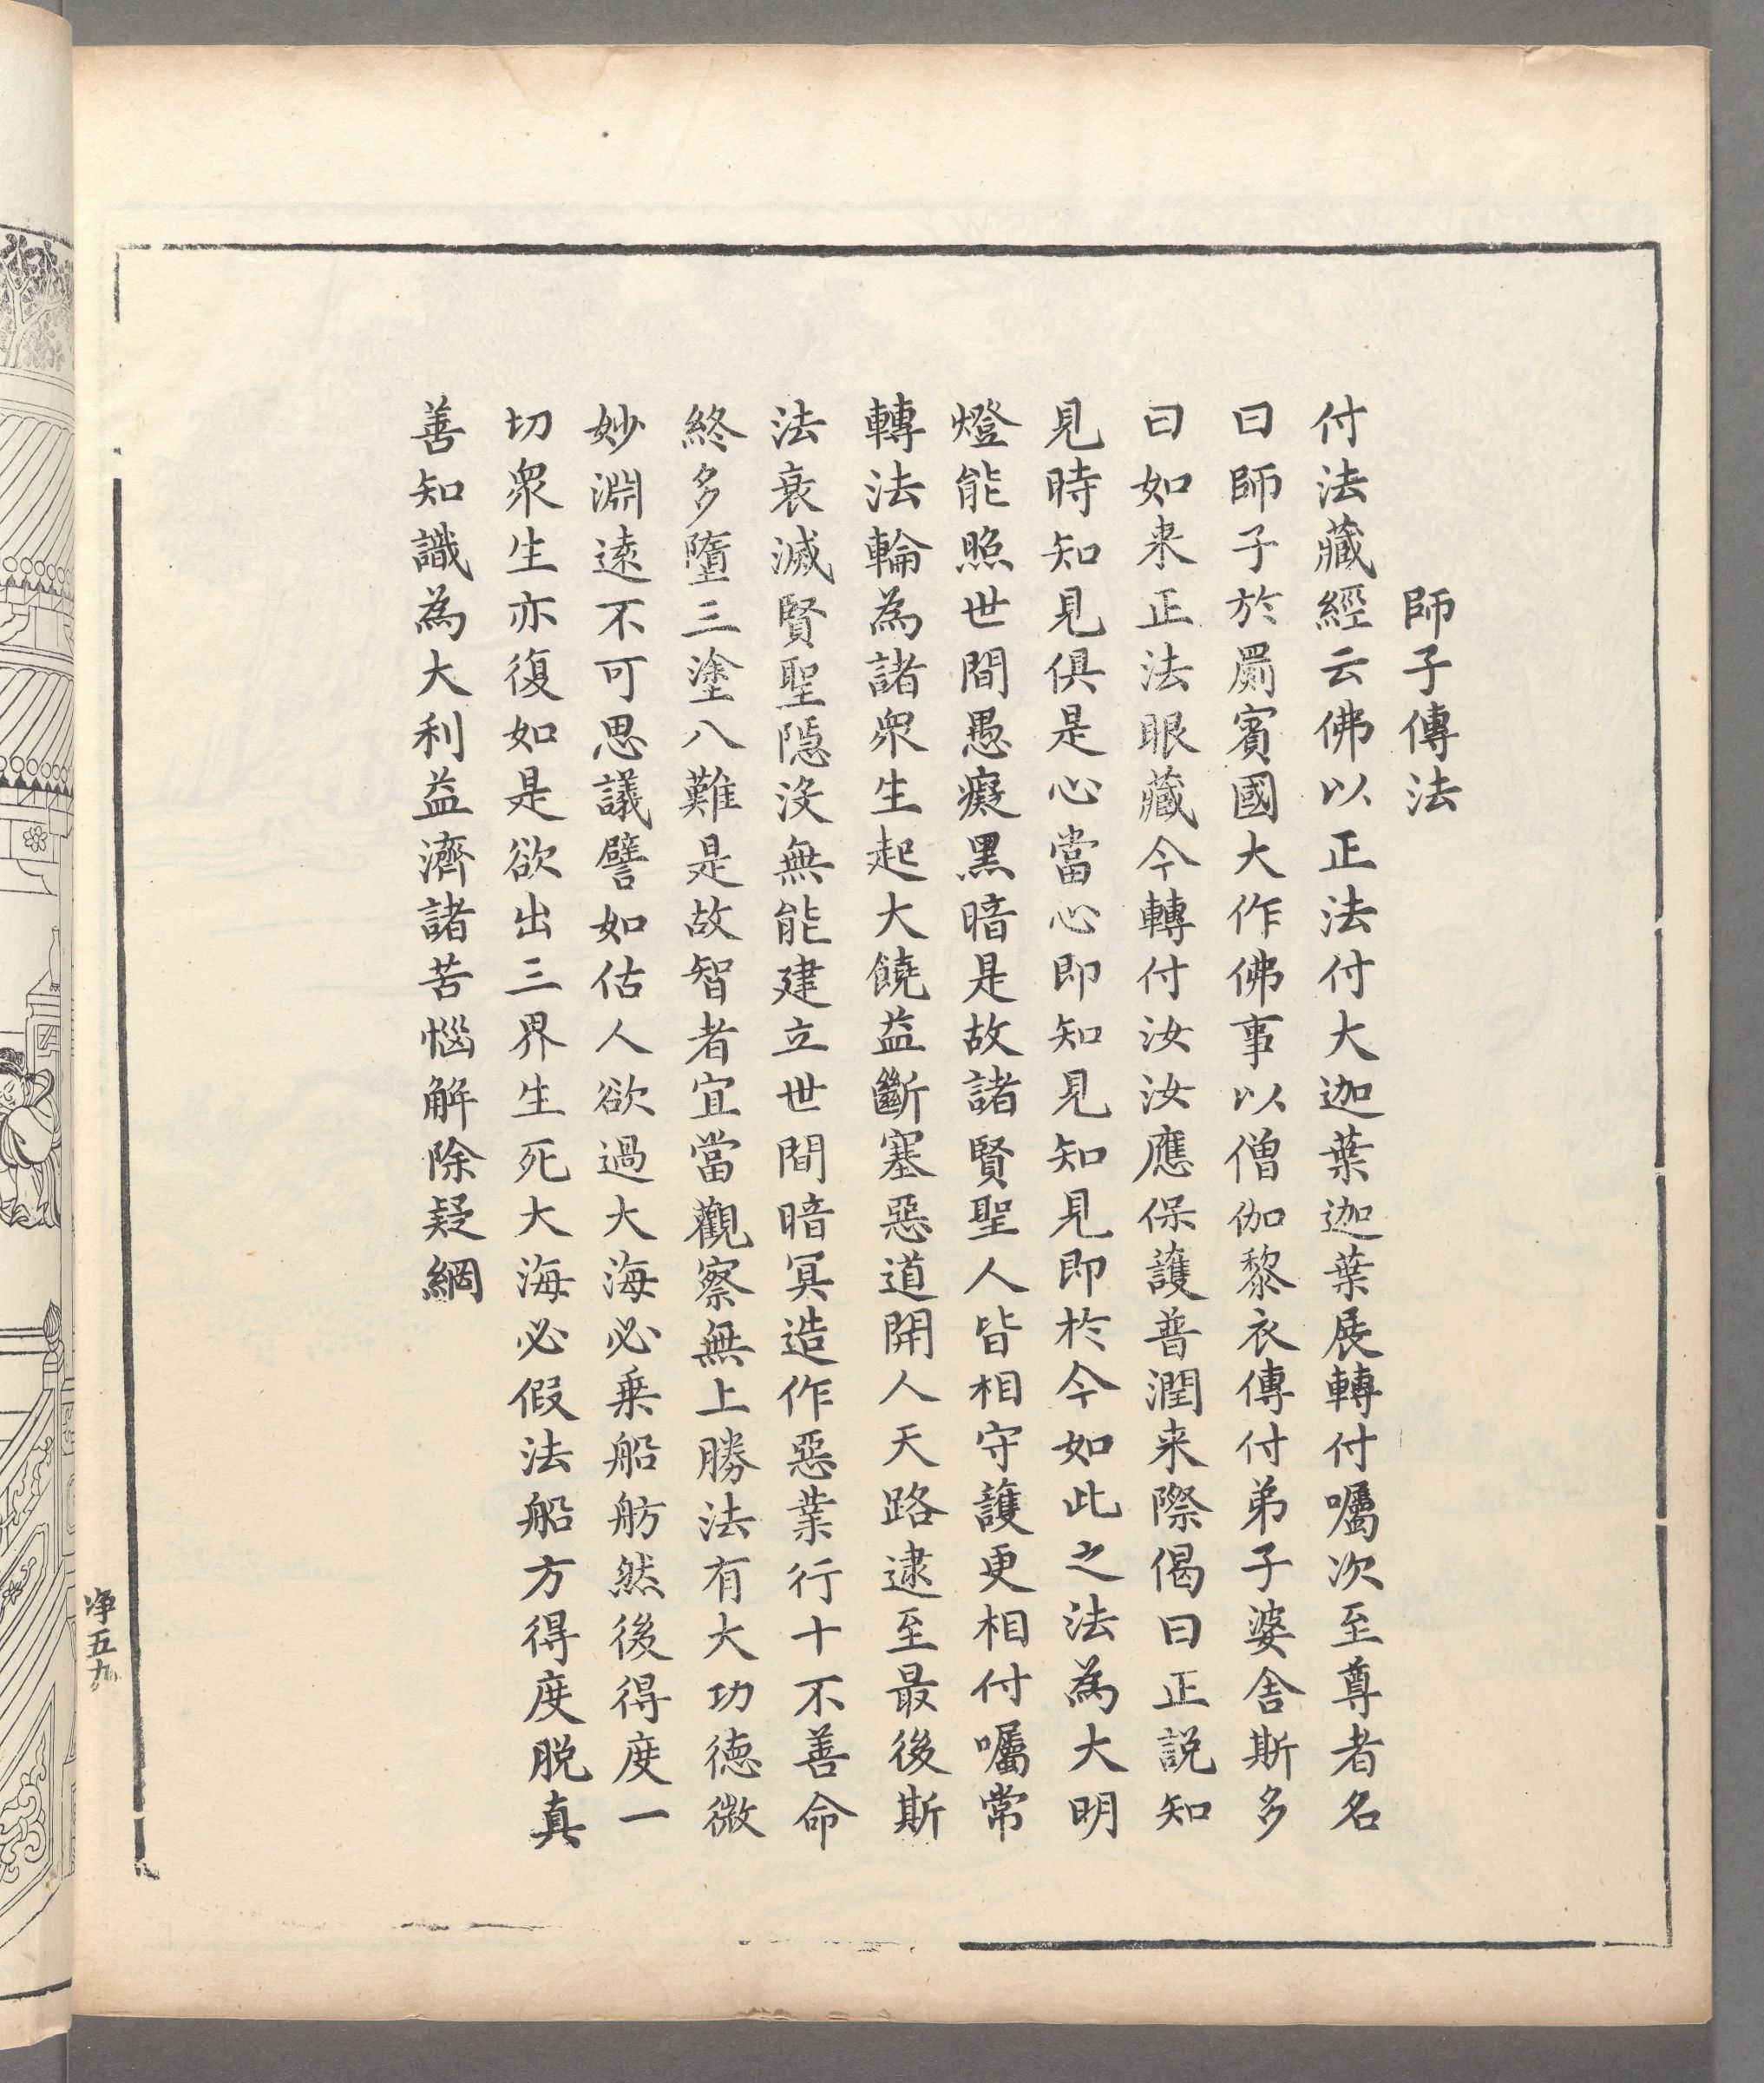 師子傳法
付法藏經云佛以正法付大迦葉迦葉展轉付囑次至尊者名
曰師子於罽賓國大作佛事以僧伽黎衣傳付弟子婆舍斯多
曰如来正法眼藏今轉付汝汝應保護普潤来際偈曰正説知
見時知見俱是心當心即知見知見即於今如此之法為大明
燈能照世間愚癡黑暗是故諸賢聖人皆相守護更相付囑常
轉法輪為諸衆生起大饒益斷塞惡道開人天路逮至最後斯
法衰滅賢聖隱没無能建立世間暗冥造作惡業行十不善命
終多墮三塗八難是故智者宜當觀察無上勝法有大功德微
妙淵遠不可思議譬如估人欲過大海必乗船舫然後得度一
切衆生亦復如是欲出三界生死大海必假法船方得度脱真
善知識為大利益濟諸苦惱解除疑網
净五九